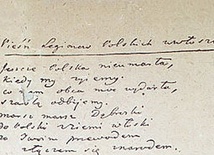 Pieśń Legionów Polskich we Włoszech
Jeszcze Polska nie umarła,
kiedy my żyjemy.
co nam obca moc wydarła,
szablą odbijemy.
marsz marsz Dąbrowski
do Polski z ziemi włoski
za Twoim przewodem
złączem się z narodem.